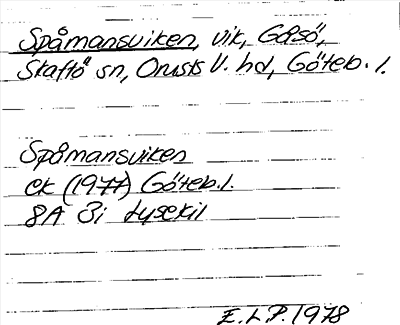 Spåmansviken, vik, Gåsö,
Skaftö sn, Orusts V. hd, Göteb. l.
Spåmansviken
ek (1977) Göteb. l.
8A 3i Lysekil
E.L.P. 1978